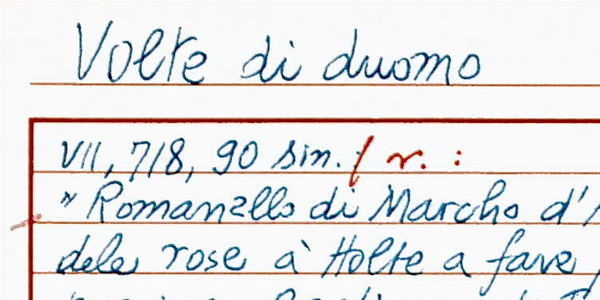 Volte di duomo
VII, 7/8, 90 sin. / r. :
"Romanello di Marcho d'
dele rose à Holte a fave